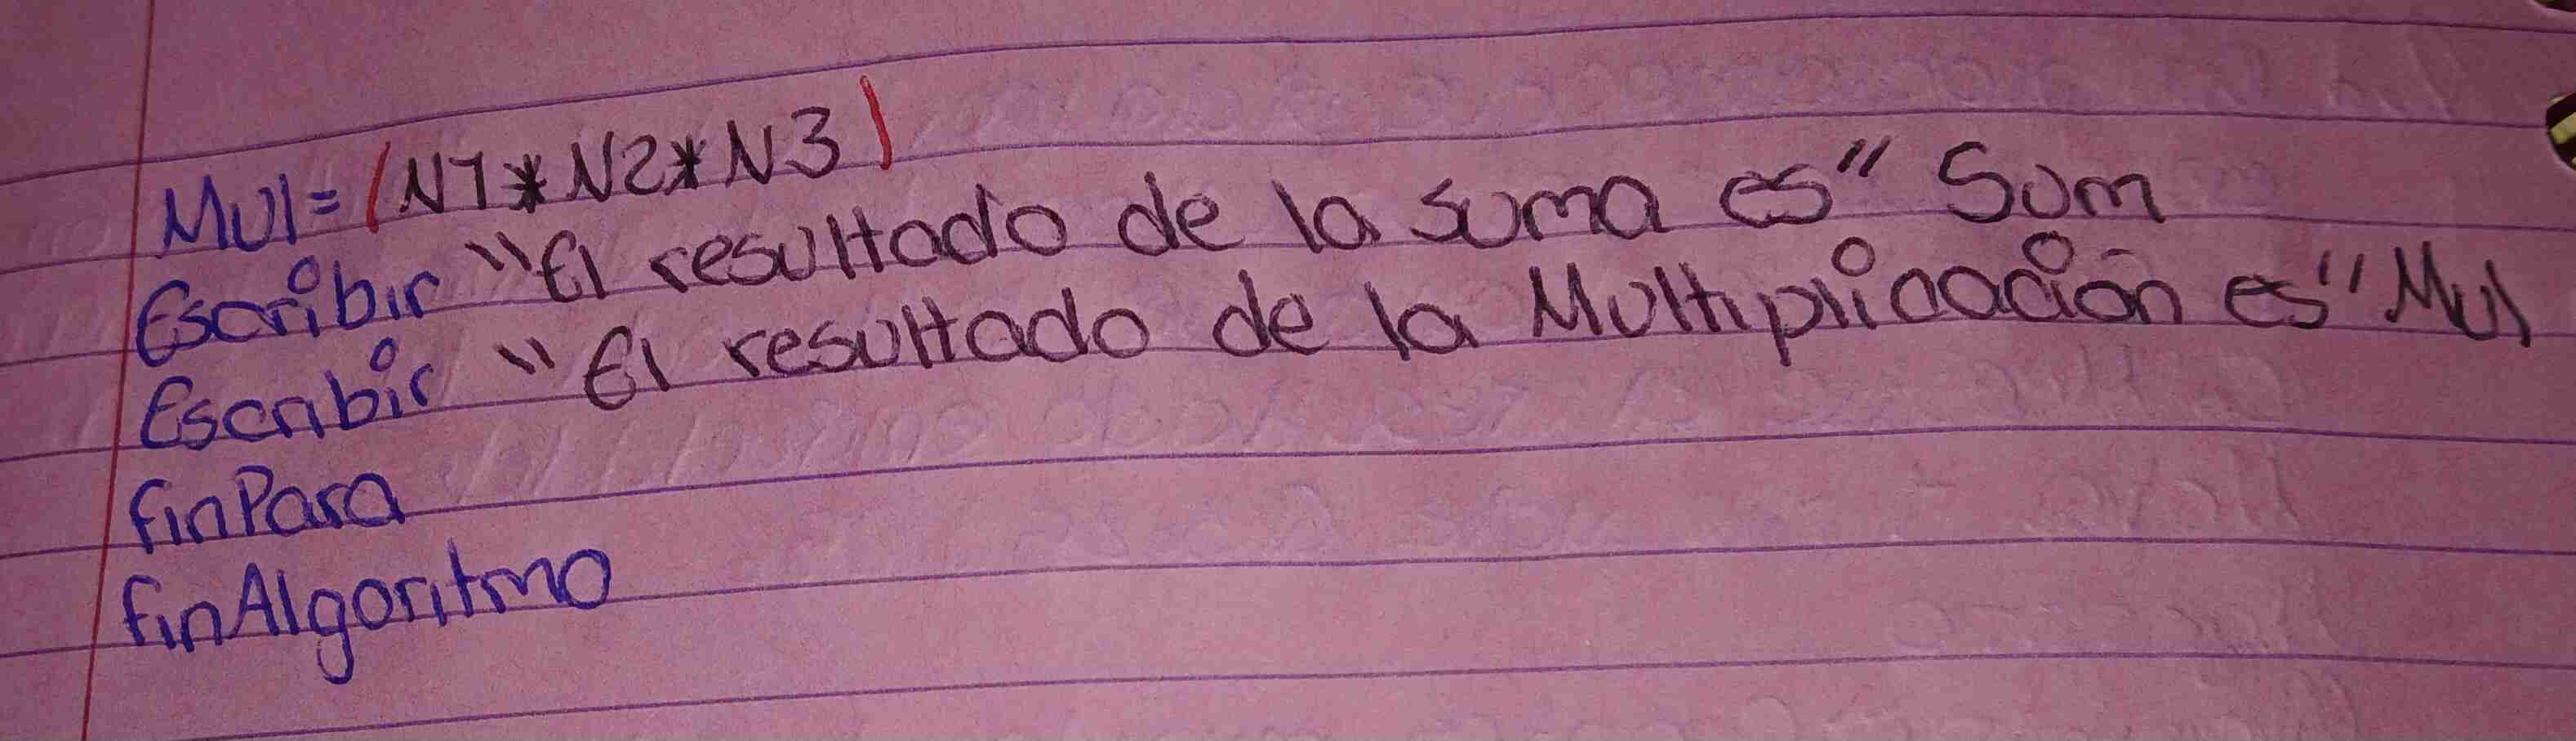 Mul=(N1*N2*N3)
Escribir "El resultado de la suma es" Sum
Escribir "El resultado de la Multiplicación es" Mul
finPara
finAlgoritmo